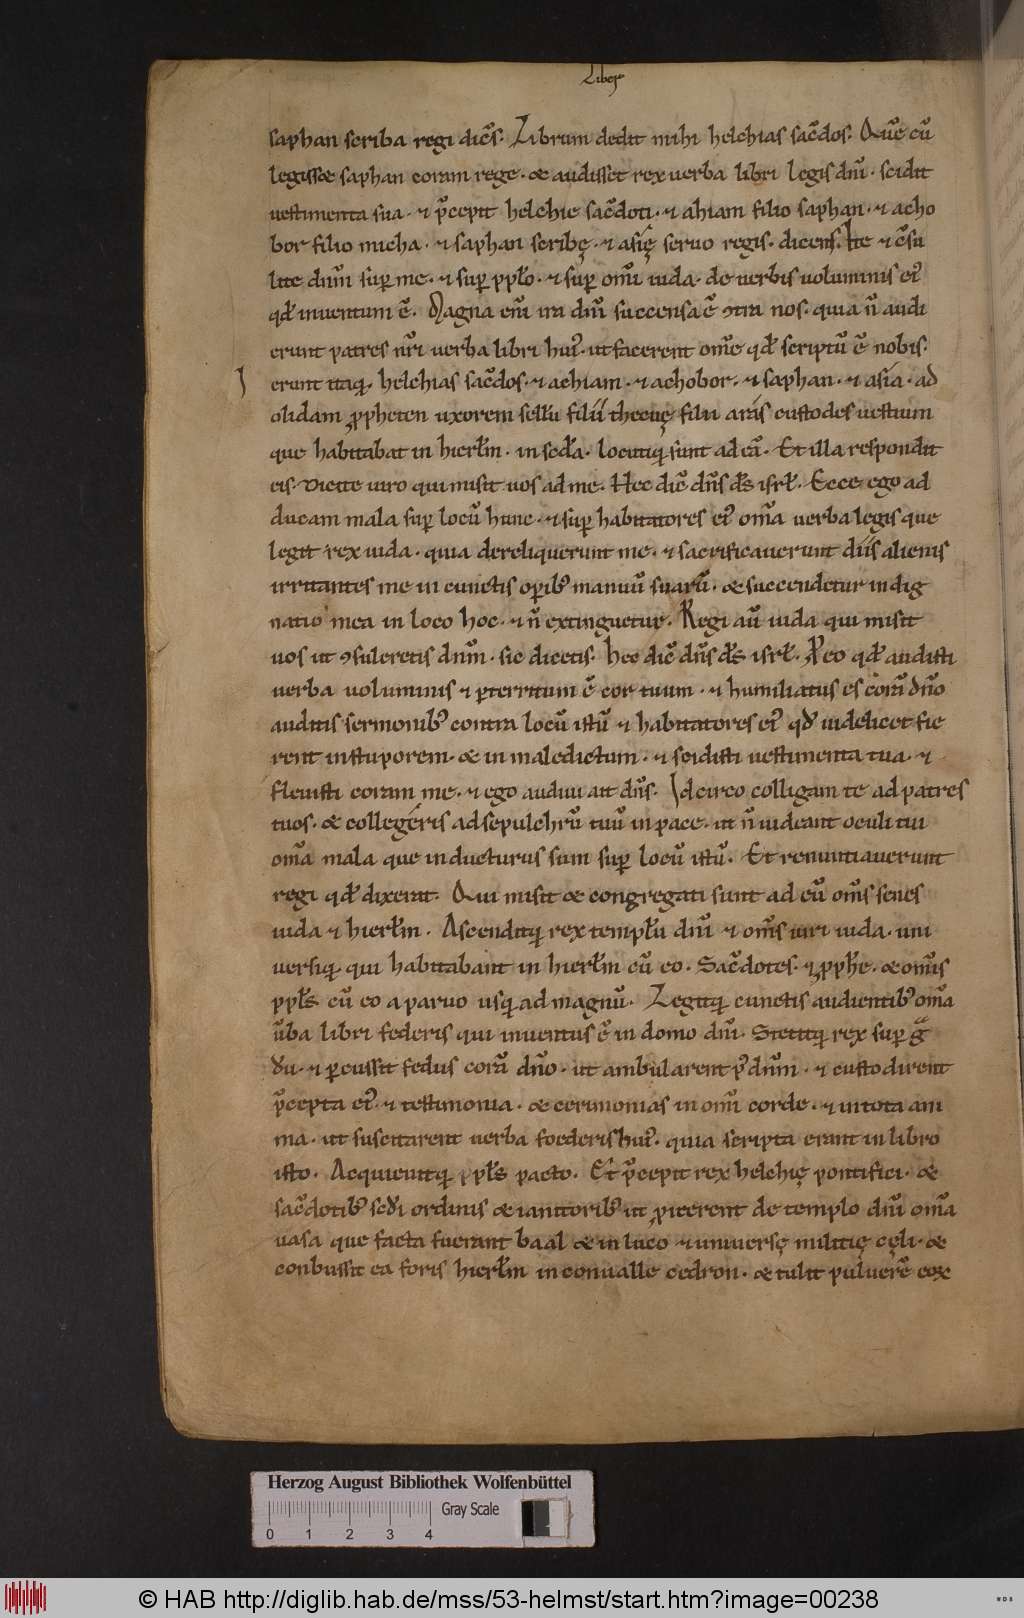 Liber
saphan scriba regi dicēs. Librum dedit mihi helchias sac̄dos. Quē cū
legisset saphan coram rege. & audisset rex verba libri legis dn̄i. scidit
vestimenta sua. ⁊ p̄cepit helchie sac̄doti. ⁊ ahiam filio saphan. ⁊ acho
bor filio micha. ⁊ saphan scribę. ⁊ asię seruo regis. dicens. Ite ⁊ c̄su
lite dn̄m sup me. ⁊ sup pplo. ⁊ sup om̄i iuda. de verbis voluminis ei᷒
qd inventum ē. Magna em̄ ira dn̄i succensa ē ꝯtra nos. quia n̄ audi
erunt patres nr̄i verba libri hui᷒. ut facerent om̄e qd scriptū ē nobis.
I erunt itaq. helchias sac̄dos. ⁊ achiam. ⁊ achobor. ⁊ saphan. ⁊ asia. ad
olidam ꝓpheten uxorem sellū filii thecuę filii aras custodes vestium
que habitabat in hierlm̄. in scd̄a. locutiq; sunt ad eā. Et illa respondit
eis. Dicite viro qui misit vos ad me. Hec dic̄ dn̄s ds̄ isrl̄. Ecce ego ad
ducam mala sup locū hunc. ⁊ sup habitatores ei᷒ om̄a verba legis que
legit rex iuda. quia dereliquerunt me. ⁊ sacrificaverunt diis alienis
irritantes me in cunctis opib᷒ manuū suarū. & succendetur indig
natio mea in loco hoc. ⁊ n̄ extinguetur. Regi aū iuda qui misit
vos ut ꝯsuleretis dn̄m. sic dicetis. Hec dic̄ dn̄s ds̄ isrl̄. P eo qd audisti
verba voluminis ⁊ pterritum ē cor tuum. ⁊ humiliatus es corā dn̄o
auditis sermonib᷒ contra locū istū ⁊ habitatores ei᷒ qd videlicet fie
rent in stuporem. & in maledictum. ⁊ scidisti vestimenta tua. ⁊
flevisti coram me. ⁊ ego audivi ait dn̄s. Idcirco colligam te ad patres
tuos. & collegeris ad sepulchrū tuū in pace. ut n̄ videant oculi tui
om̄a mala que inducturus sum sup locū istū. Et renuntiaverunt
regi qd dixerat. Qui misit & congregati sunt ad eū om̄s senes
iuda ⁊ hierlm̄. Ascenditq; rex templū dn̄i ⁊ om̄s viri iuda. uni
versiq; qui habitabant in hierlm̄ cū eo. Sac̄dotes. ⁊ ꝓphe. & om̄is
ppls̄ cū eo a parvo usq; ad magnū. Legitq; cunctis audientib᷒ om̄a
v̄ba libri federis qui inventus ē in domo dn̄i. Stetitq; rex sup gͣ
du. ⁊ pcussit fedus corā dn̄o. ut ambularent p᷒ dn̄m. ⁊ custodirent
p̄cepta ei᷒. ⁊ testimonia. & cerimonias in om̄i corde. ⁊ in tota ani
ma. ut suscitarent verba foederis hui᷒. quia scripta erant in libro
isto. Acquievitq; ppls̄ pacto. Et p̄cepit rex helchię pontifici. &
sac̄dotib᷒ scdi ordinis & ianitorib᷒ ut ꝓicerent de templo dn̄i om̄a
vasa que facta fuerant baal & in luco ⁊ universę militię cęli. &
conbussit ea foris hierlm̄ in convalle cedron. & tulit pulverē eoꝝ
Herzog August Bibliothek Wolfenbüttel
Gray Scale
0 1 2 3 4
© HAB http://diglib.hab.de/mss/53-helmst/start.htm?image=00238